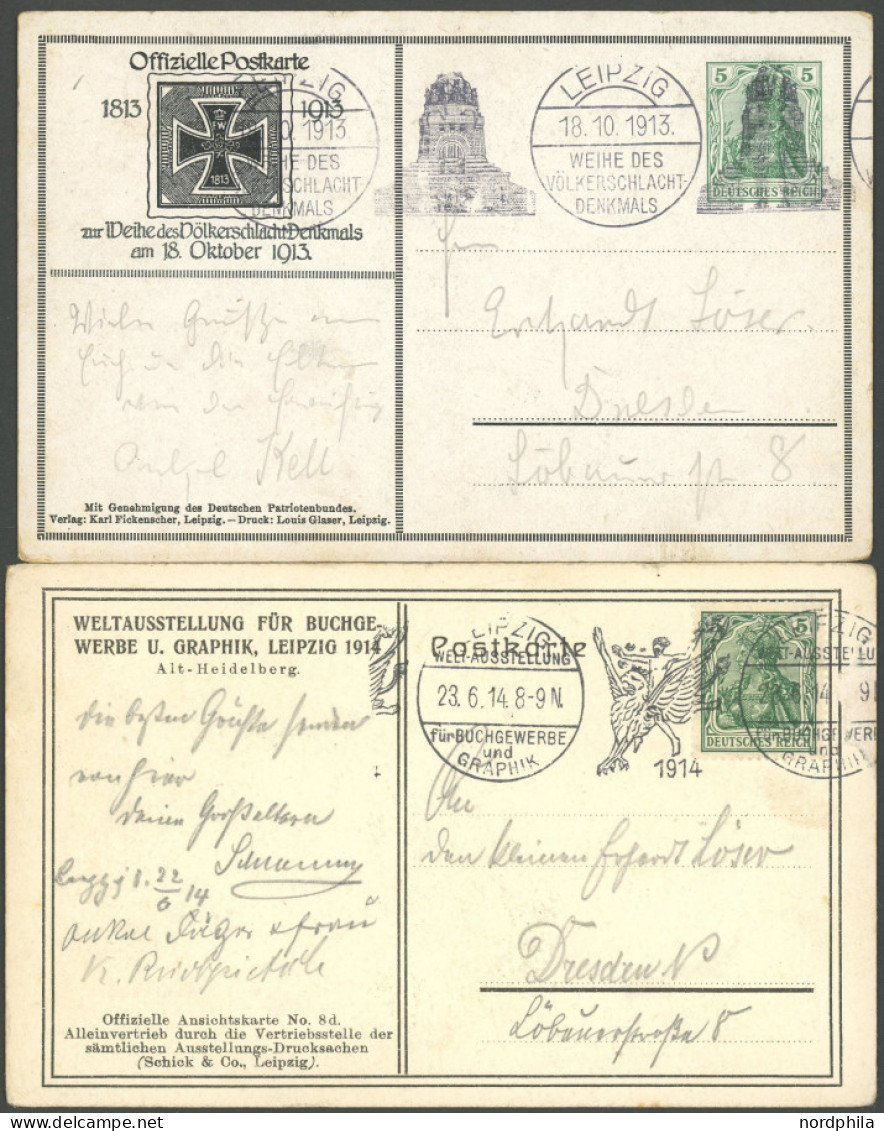 Offizielle Postkarte
1813 1913
1813
zur Weihe des Völkerschlacht-Denkmals
am 18. Oktober 1913.
LEIPZIG
18.10.1913.
WEIHE DES
VÖLKERSCHLACHT-
DENKMALS
5 5
DEUTSCHES REICH
Viele Grüße
Erhardt Löser
Dresden
Löbauer str 8
Mit Genehmigung des Deutschen Patriotenbundes.
Verlag: Karl Fickenscher, Leipzig. – Druck: Louis Glaser, Leipzig.
WELTAUSSTELLUNG FÜR BUCHGE-
WERBE U. GRAPHIK, LEIPZIG 1914
Alt-Heidelberg.
Postkarte
LEIPZIG
WELT-AUSSTELLUNG
23.6.14.8-9N.
für BUCHGEWERBE
und
GRAPHIK
1914
5
DEUTSCHES REICH
die besten Grüße senden
von hier
deine Großeltern
22
6 14
onkel Jäger & frau
An
den kleinen Erhardt Löser
Dresden N
Löbauerstraße 8
Offizielle Ansichtskarte No. 8d.
Alleinvertrieb durch die Vertriebsstelle der
sämtlichen Ausstellungs-Drucksachen
(Schick & Co., Leipzig).
nordphila